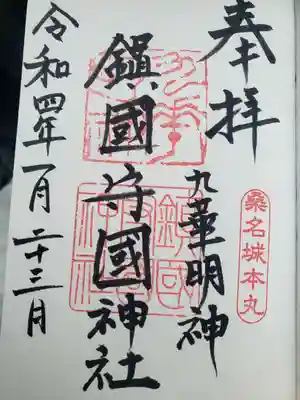 奉拝
桑名城本丸
九華明神
鎭國守國神社
令和四年一月二十三日